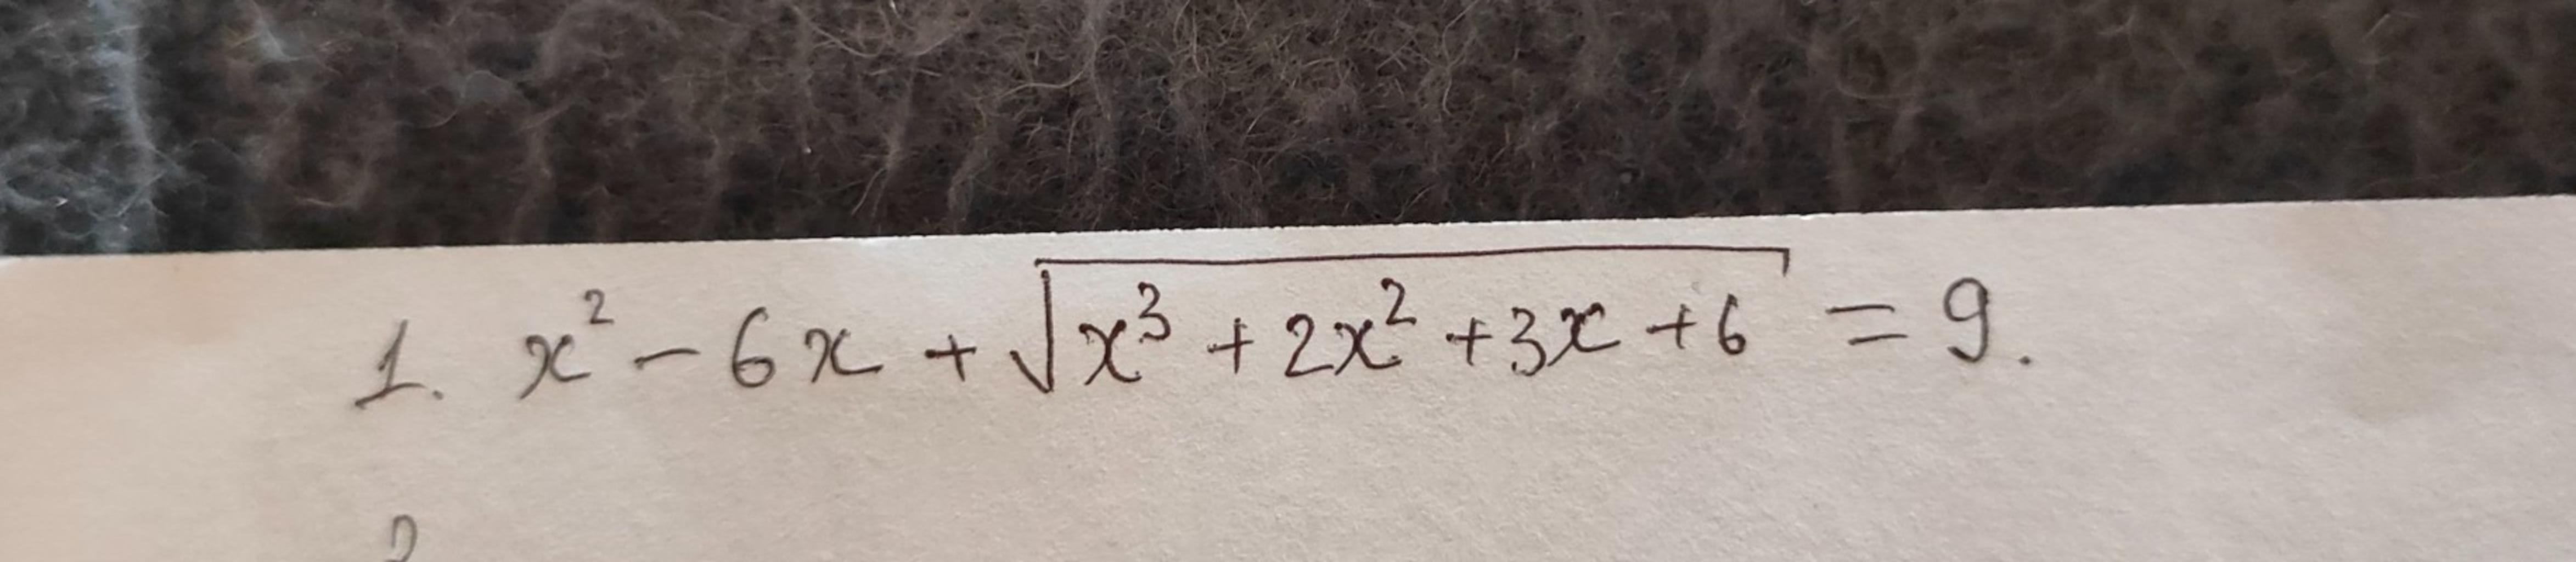 1. x² - 6x + √(x³ + 2x² + 3x + 6) = 9.